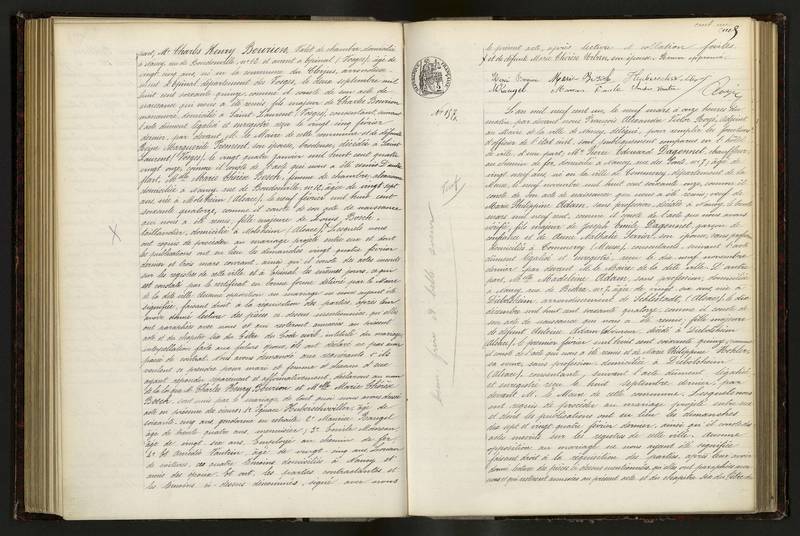 part, Mr Charles Henry Bouvion, Valet de chambre, domicilié
à Nancy, rue de Boudonville, no 12 et avant à Épinal (Vosges), âgé de
vingt cinq ans, né en la commune du Clerjus, arrondisse-
ment d'Épinal département des Vosges, le deux septembre mil
huit cent soixante quinze, comme il conste de son acte de
naissance qui nous a été remis, fils majeur de Charles Bouvion
manœuvre, domicilié à Saint Laurent (Vosges), consentant, suivant
l'acte dûment légalisé et enregistré reçu le vingt cinq février
dernier, par devant M. le Maire de cette commune et de défunte
Marguerite son épouse, brodeuse, décédée à Saint
Laurent (Vosges), le vingt quatre janvier mil huit cent quatre
vingt onze, comme il conste de l'acte qui nous a été remis, D'autre
part, Mlle Marie Thérèse Bosch, femme de chambre,
domiciliée à Nancy, rue de Boudonville, no 12, âgée de vingt sept
ans, née à Molsheim (Alsace), le neuf février mil huit cent
soixante quatorze, comme il conste de son acte de naissance
qui nous a été remis, fille majeure de Louis Bosch
taillandier, domicilié à Molsheim (Alsace). Lesquels nous
ont requis de procéder au mariage projeté entre eux et dont
les publications ont eu lieu les dimanches vingt quatre février
dernier et trois mars courant, ainsi qu'il conste des actes inscrits
sur les registres de cette ville et à Épinal les mêmes jours, ce qui
est constaté par le certificat en bonne forme délivré par le Maire
de la dite ville. Aucune opposition au mariage ne nous ayant été
signifiée, faisant droit à la réquisition des parties, après leur
avoir donné lecture des pièces ci-dessus mentionnées, qu'elles
ont paraphées avec nous et qui resteront annexées au présent
acte et du chapitre six du titre du Code civil, intitulé du mariage,
interpellation faite aux futurs époux, ils ont déclaré ne pas avoir
passé de contrat. Nous avons demandé aux requérants s'ils
veulent se prendre pour mari et femme, chacun d'eux
ayant répondu séparément et affirmativement, déclarons au nom
de la loi que Mr Charles Henry Bouvion et Mlle Marie Thérèse
Bosch, sont unis par le mariage de tout quoi nous avons dressé
acte en présence de sieurs, 1o Ignace Huberschwiller, âgé de
soixante cinq ans, gendarme en retraite, 2o Maurice Rangel
âgé de trente quatre ans, menuisier, 3o Émile Moreau,
âgé de vingt six ans, Employé au chemin de fer,
4o et Amédé Vautrin, âgé de vingt cinq ans,
de voitures, ces quatre témoins domiciliés à Nancy et
amis des époux. Et ont, les parties contractantes et
les témoins ci-dessus dénommés, signé avec nous
le présent acte, après lecture et collation faites.
et de défunte Marie Thérèse son épouse. Renvoi approuvé.
Marie Bosch
M Rangel
Rozé
No 157.
L'an mil neuf cent un, le neuf mars à onze heures du
matin, par devant nous François Alexandre Victor Rozé, adjoint
au Maire de la ville de Nancy, délégué pour remplir les fonctions
d'officier de l'état civil, sont publiquement comparus en l'hôtel
de ville d'une part, Mr Pierre Edouard Dagonnet, chauffeur
au chemin de fer, domicilié à Nancy, rue des Ponts, no 7, âgé de
vingt neuf ans, né en la ville de Commercy, département de la
Meuse, le neuf novembre mil huit cent soixante onze, comme il
conste de son acte de naissance qui nous a été remis, veuf de
Marie Philippine Adam, sans profession, décédée à Nancy, le
mars mil neuf cent, comme il conste de l'acte que nous avons
vérifié, fils majeur de Joseph Émile Dagonnet garçon de
confiance et de Marie Mathilde son épouse, sans profession
domiciliés à Commercy (Meuse), consentants, suivant l'acte
dûment légalisé et enregistré, reçu le dix neuf novembre
dernier par devant M. le Maire de la dite ville. D'autre
part, Mlle Madeleine Adam, sans profession, domiciliée
à Nancy, rue de no 7, âgée de vingt six ans, née à
Diebolsheim, arrondissement de Schlestadt, (Alsace), le dix
décembre mil huit cent soixante quatorze, comme il conste de
son acte de naissance qui nous a été remis, fille majeure
de défunt Antoine Adam décédé à Diebolsheim
(Alsace), le premier février mil huit cent soixante quinze, comme
il conste de l'acte qui nous a été remis et de Marie Philippine
sa veuve, sans profession, domiciliée à Diebolsheim
(Alsace), consentante, suivant l'acte dûment légalisé
et enregistré reçu le huit septembre dernier, par
devant M. le Maire de cette commune. Lesquels nous
ont requis de procéder au mariage projeté entre eux
et dont les publications ont eu lieu les dimanches
dix sept et vingt quatre février dernier, ainsi qu'il conste des
actes inscrits sur les registres de cette ville. Aucune
opposition au mariage ne nous ayant été signifiée
faisant droit à la réquisition des parties, après leur avoir
donné lecture des pièces ci-dessus mentionnées, qu'elles ont paraphées avec
nous et qui resteront annexées au présent acte et du chapitre six du titre du